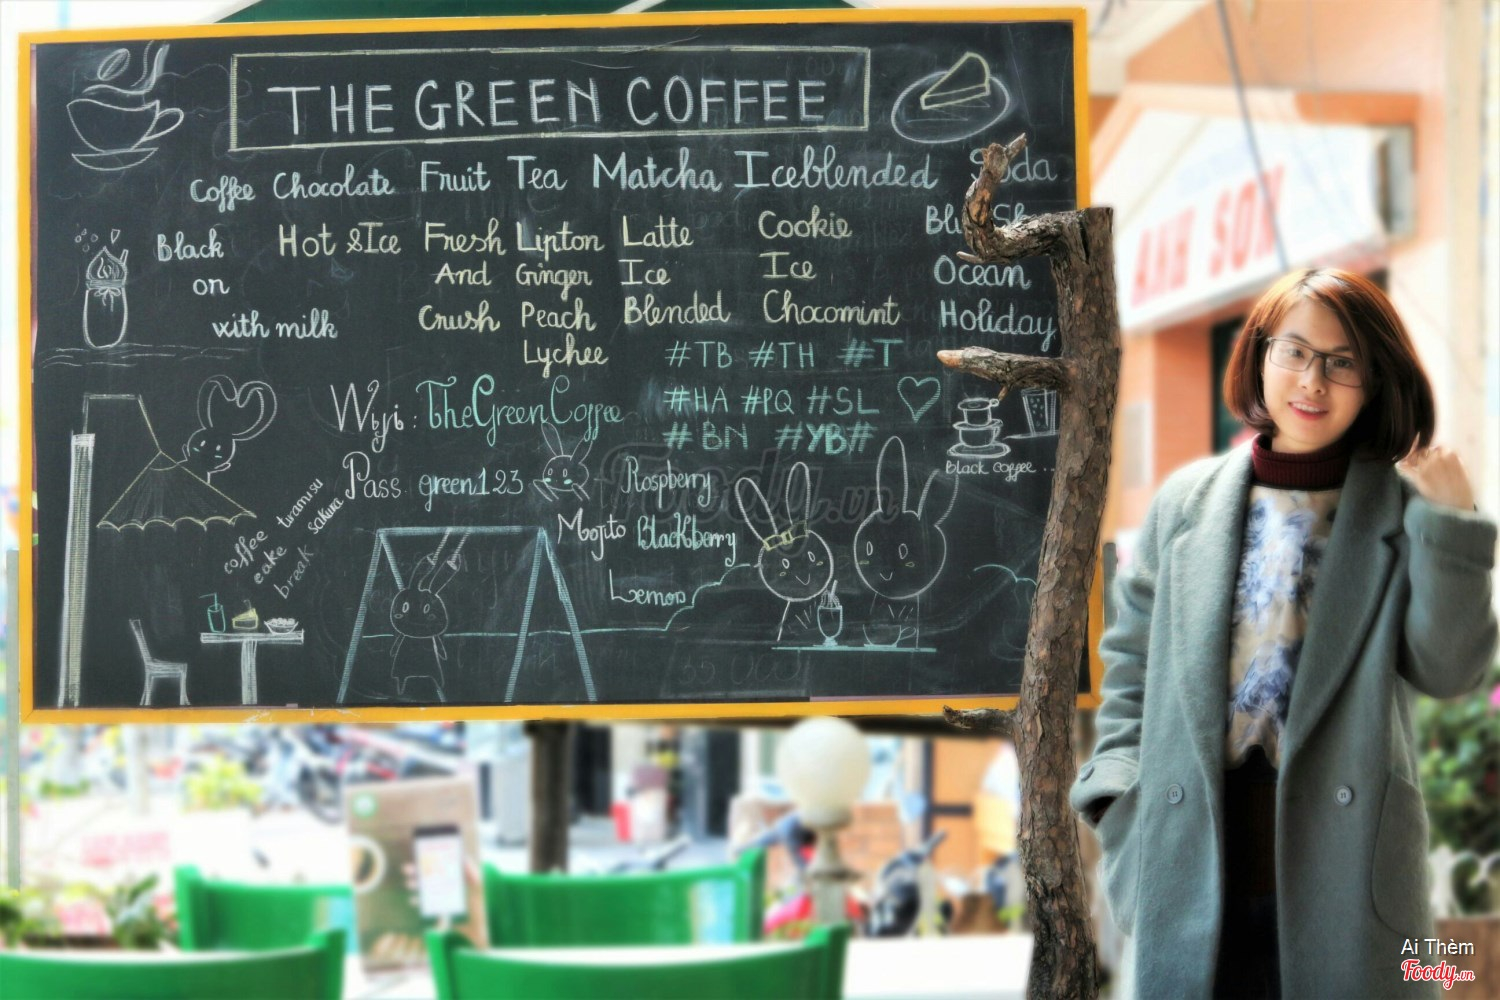 THE GREEN COFFEE
Coffee Chocolate Fruit Tea Matcha Iceblended Soda
Black
on
with milk
Hot & Ice
Fresh
And
Crush
Lipton
Ginger
Peach
Lychee
Latte
Ice
Blended
Cookie
Ice
Chocomint
Ocean
Holiday
#TB #TH #T
#HA #PQ #SL
#BN #YB#
: TheGreenCoffee
Pass green123
tiramisu
coffee sakura
cake
break
Raspberry
Mojito Blackberry
Lemon
Black coffee ..
ANH SƠN
Foody.vn
Ai Thèm
Foody.vn